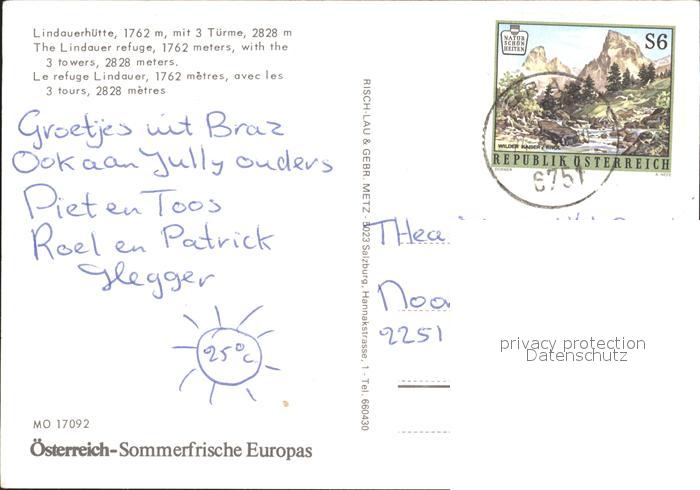 Lindauerhütte, 1762 m, mit 3 Türme, 2828 m
The Lindauer refuge, 1762 meters, with the
3 towers, 2828 meters.
Le refuge Lindauer, 1762 mètres, avec les
3 tours, 2828 mètres
Groetjes uit Braz
Ook aan Jully ouders
Piet en Toos
Roel en Patrick
Hegger
25°C
MO 17092
Österreich-Sommerfrische Europas
RISCH-LAU & GEBR. METZ - 5023 Salzburg, Hannakstrasse, 1 - Tel. 660430
NATUR
SCHÖN
HEITEN
S6
WILDER KAISER / TIROL
REPUBLIK ÖSTERREICH
6751
THea
Noo
2251
privacy protection
Datenschutz